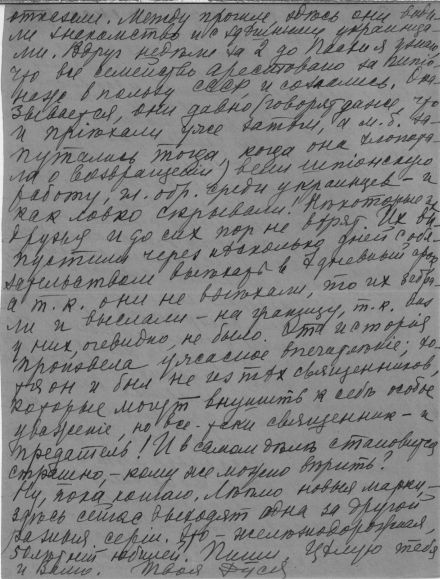 отказали. Между прочим, здѣсь они вѣли
знакомство и с здѣшними украинца-
ми. Вдруг недѣли за 2 до Пасхи я узнаю,
что все семейство арестовано за шпіо-
наж в пользу СССР и сознались. Ока-
зывается, они давно (говорят даже, что
и пріѣхали уже затѣм, а м. б. за-
путались тогда, когда она хлопота-
ла о возвращеніи) вели шпіонскую
работу, гл. обр. среди украинцев – и
как ловко скрывали! Нѣкоторые их
друзья и до сих пор не вѣрят. Их вы-
пустили через нѣсколько дней с обя-
зательством выѣхать в дневный срок,
а т. к. они не выѣхали, то их забра-
ли и выслали – на границу, т. к. виз
у них, очевидно, не было. Эта исторія
произвела ужасное впечатлѣніе; хо-
тя он и был не из тѣх священников,
которые могут внушить к себѣ особое
уваженіе, но все-таки священник – и
предатель! И в самом дѣлѣ становится
страшно, – кому же можно вѣрить?
Ну, пока кончаю. новыя марки –
здѣсь сейчас выходят одна за другой
разныя серіи. Это – желѣзнодорожная,
50лѣтній юбилей. Пиши. Цѣлую тебя
и Ваню. Твоя Дуся